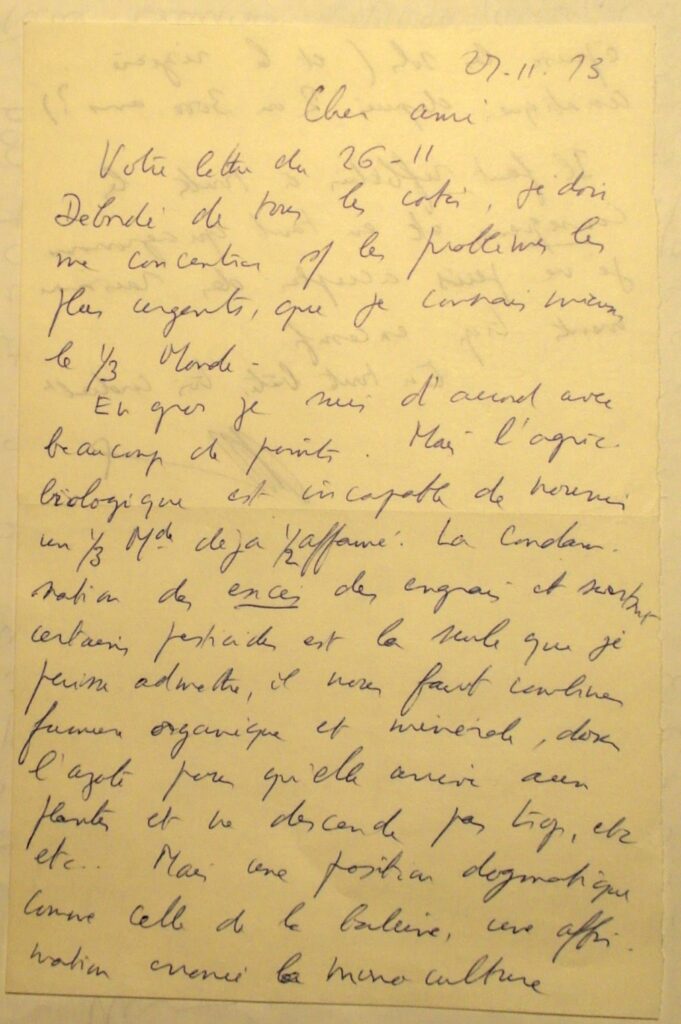 27-11-73
Cher ami
Votre lettre du 26-11
Débordé de tous les cotés, je dois
me concentrer s/ les problèmes les
plus urgents, que je connais mieux
le 1/3 Monde -
En gros je suis d'accord avec
beaucoup de points. Mais l'agric.
biologique est incapable de nourrir
un 1/3 Mde déjà 1/2 affamé. La condam-
nation des excès des engrais et surtout
certains pesticides est la seule que je
puisse admettre, il nous faut combiner
fumure organique et minérale, doser
l'azote pour qu'elle arrive aux
plantes et ne descende pas trop, etc
etc.. Mais une position dogmatique
comme celle de la baleine, une affir-
mation comme la monoculture